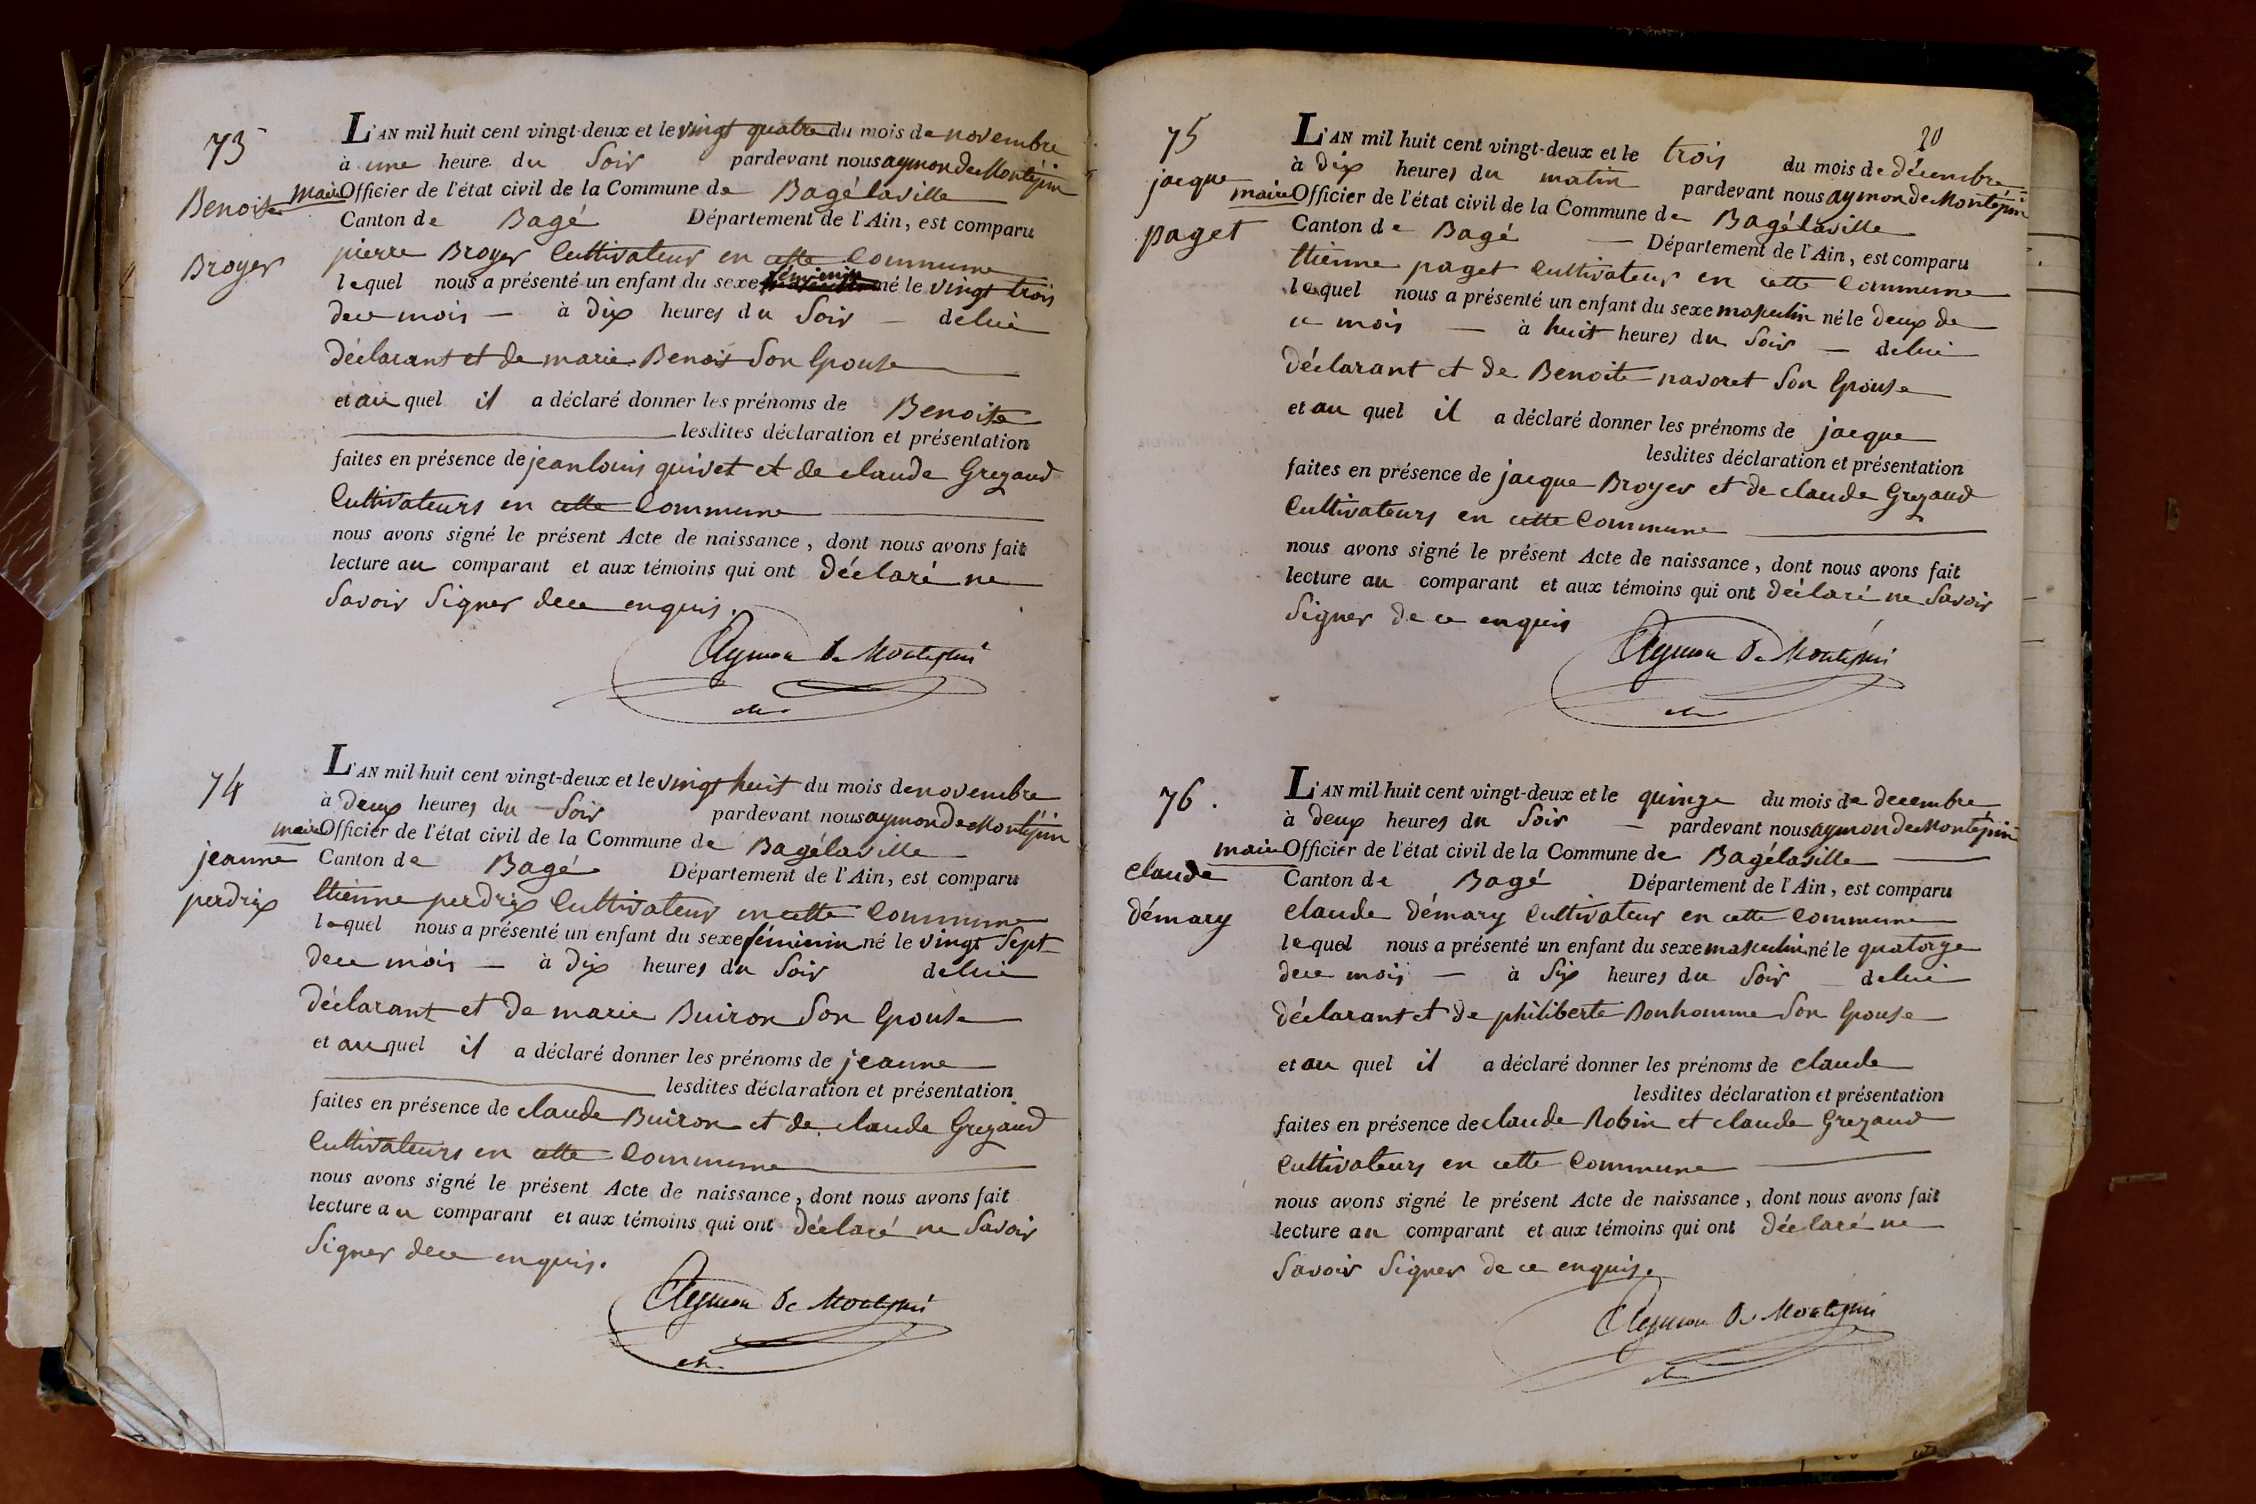 73
Benoite
Broyer
L'AN mil huit cent vingt-deux et le vingt quatre du mois de novembre
à une heure du Soir pardevant nous aymon de Montépin
maire Officier de l'état civil de la Commune de Bagélaville
Canton de Bagé Département de l'Ain, est comparu
pierre Broyer Cultivateur en cette Commune
lequel nous a présenté un enfant du sexe féminin né le vingt trois
de ce mois à dix heures du Soir de lui
déclarant et de marie Benois Son Epouse
et au quel il a déclaré donner les prénoms de Benoite
lesdites déclaration et présentation
faites en présence de jean louis quivet et de claude Grezaud
Cultivateurs en cette Commune
nous avons signé le présent Acte de naissance, dont nous avons fait
lecture au comparant et aux témoins qui ont déclaré ne
Savoir Signer de ce enquis.
Aymon de Montépin
74
jeanne
perdrix
L'AN mil huit cent vingt-deux et le vingt huit du mois de novembre
à deux heures du Soir pardevant nous aymon de Montépin
maire Officier de l'état civil de la Commune de Bagélaville
Canton de Bagé Département de l'Ain, est comparu
Etienne perdrix Cultivateur en cette Commune
lequel nous a présenté un enfant du sexe féminin né le vingt Sept
de ce mois à dix heures du Soir de lui
déclarant et de marie Buiron Son Epouse
et au quel il a déclaré donner les prénoms de jeanne
lesdites déclaration et présentation
faites en présence de claude Buiron et de claude Grezaud
Cultivateurs en cette Commune
nous avons signé le présent Acte de naissance, dont nous avons fait
lecture au comparant et aux témoins qui ont déclaré ne Savoir
Signer de ce enquis.
Aymon de Montépin
20
75
jacque
paget
L'AN mil huit cent vingt-deux et le trois du mois de décembre
à dix heures du matin pardevant nous aymon de Montépin
maire Officier de l'état civil de la Commune de Bagélaville
Canton de Bagé Département de l'Ain, est comparu
Etienne paget Cultivateur en cette Commune
lequel nous a présenté un enfant du sexe masculin né le deux de
ce mois à huit heures du Soir de lui
déclarant et de Benoite navoret Son Epouse
et au quel il a déclaré donner les prénoms de jacque
lesdites déclaration et présentation
faites en présence de jacque Broyer et de claude Grezaud
Cultivateurs en cette Commune
nous avons signé le présent Acte de naissance, dont nous avons fait
lecture au comparant et aux témoins qui ont déclaré ne Savoir
Signer de ce enquis
Aymon de Montépin
76.
claude
démary
L'AN mil huit cent vingt-deux et le quinze du mois de decembre
à deux heures du Soir pardevant nous aymon de Montépin
maire Officier de l'état civil de la Commune de Bagélaville
Canton de Bagé Département de l'Ain, est comparu
claude démary Cultivateur en cette Commune
lequel nous a présenté un enfant du sexe masculin né le quatorze
de ce mois à Six heures du Soir de lui
déclarant et de philiberte Bonhomme Son Epouse
et au quel il a déclaré donner les prénoms de claude
lesdites déclaration et présentation
faites en présence de claude Robin et claude Grezaud
Cultivateurs en cette Commune
nous avons signé le présent Acte de naissance, dont nous avons fait
lecture au comparant et aux témoins qui ont déclaré ne
Savoir Signer de ce enquis.
Aymon de Montépin